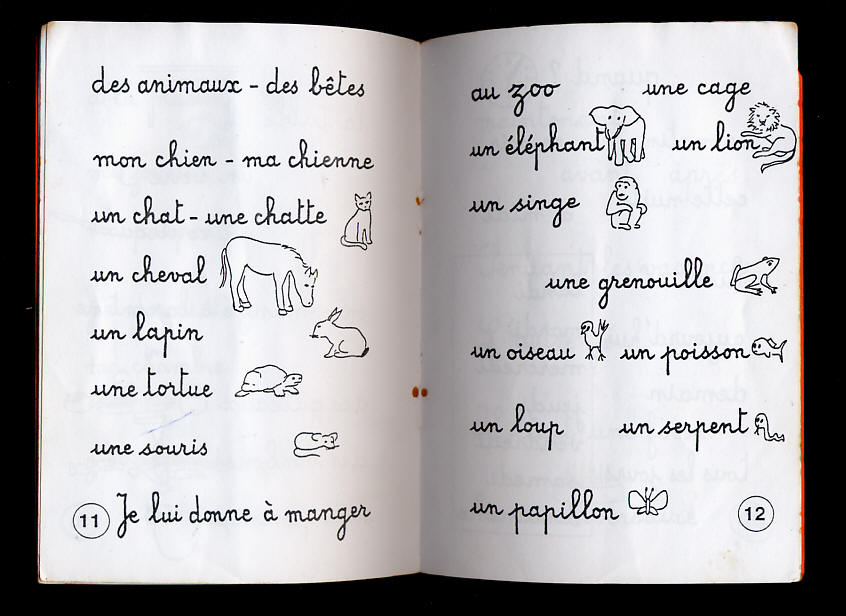 des animaux - des bêtes
mon chien - ma chienne
un chat - une chatte
un cheval
un lapin
une tortue
une souris
11 Je lui donne à manger
au zoo une cage
un éléphant un lion
un singe
une grenouille
un oiseau un poisson
un loup un serpent
un papillon 12